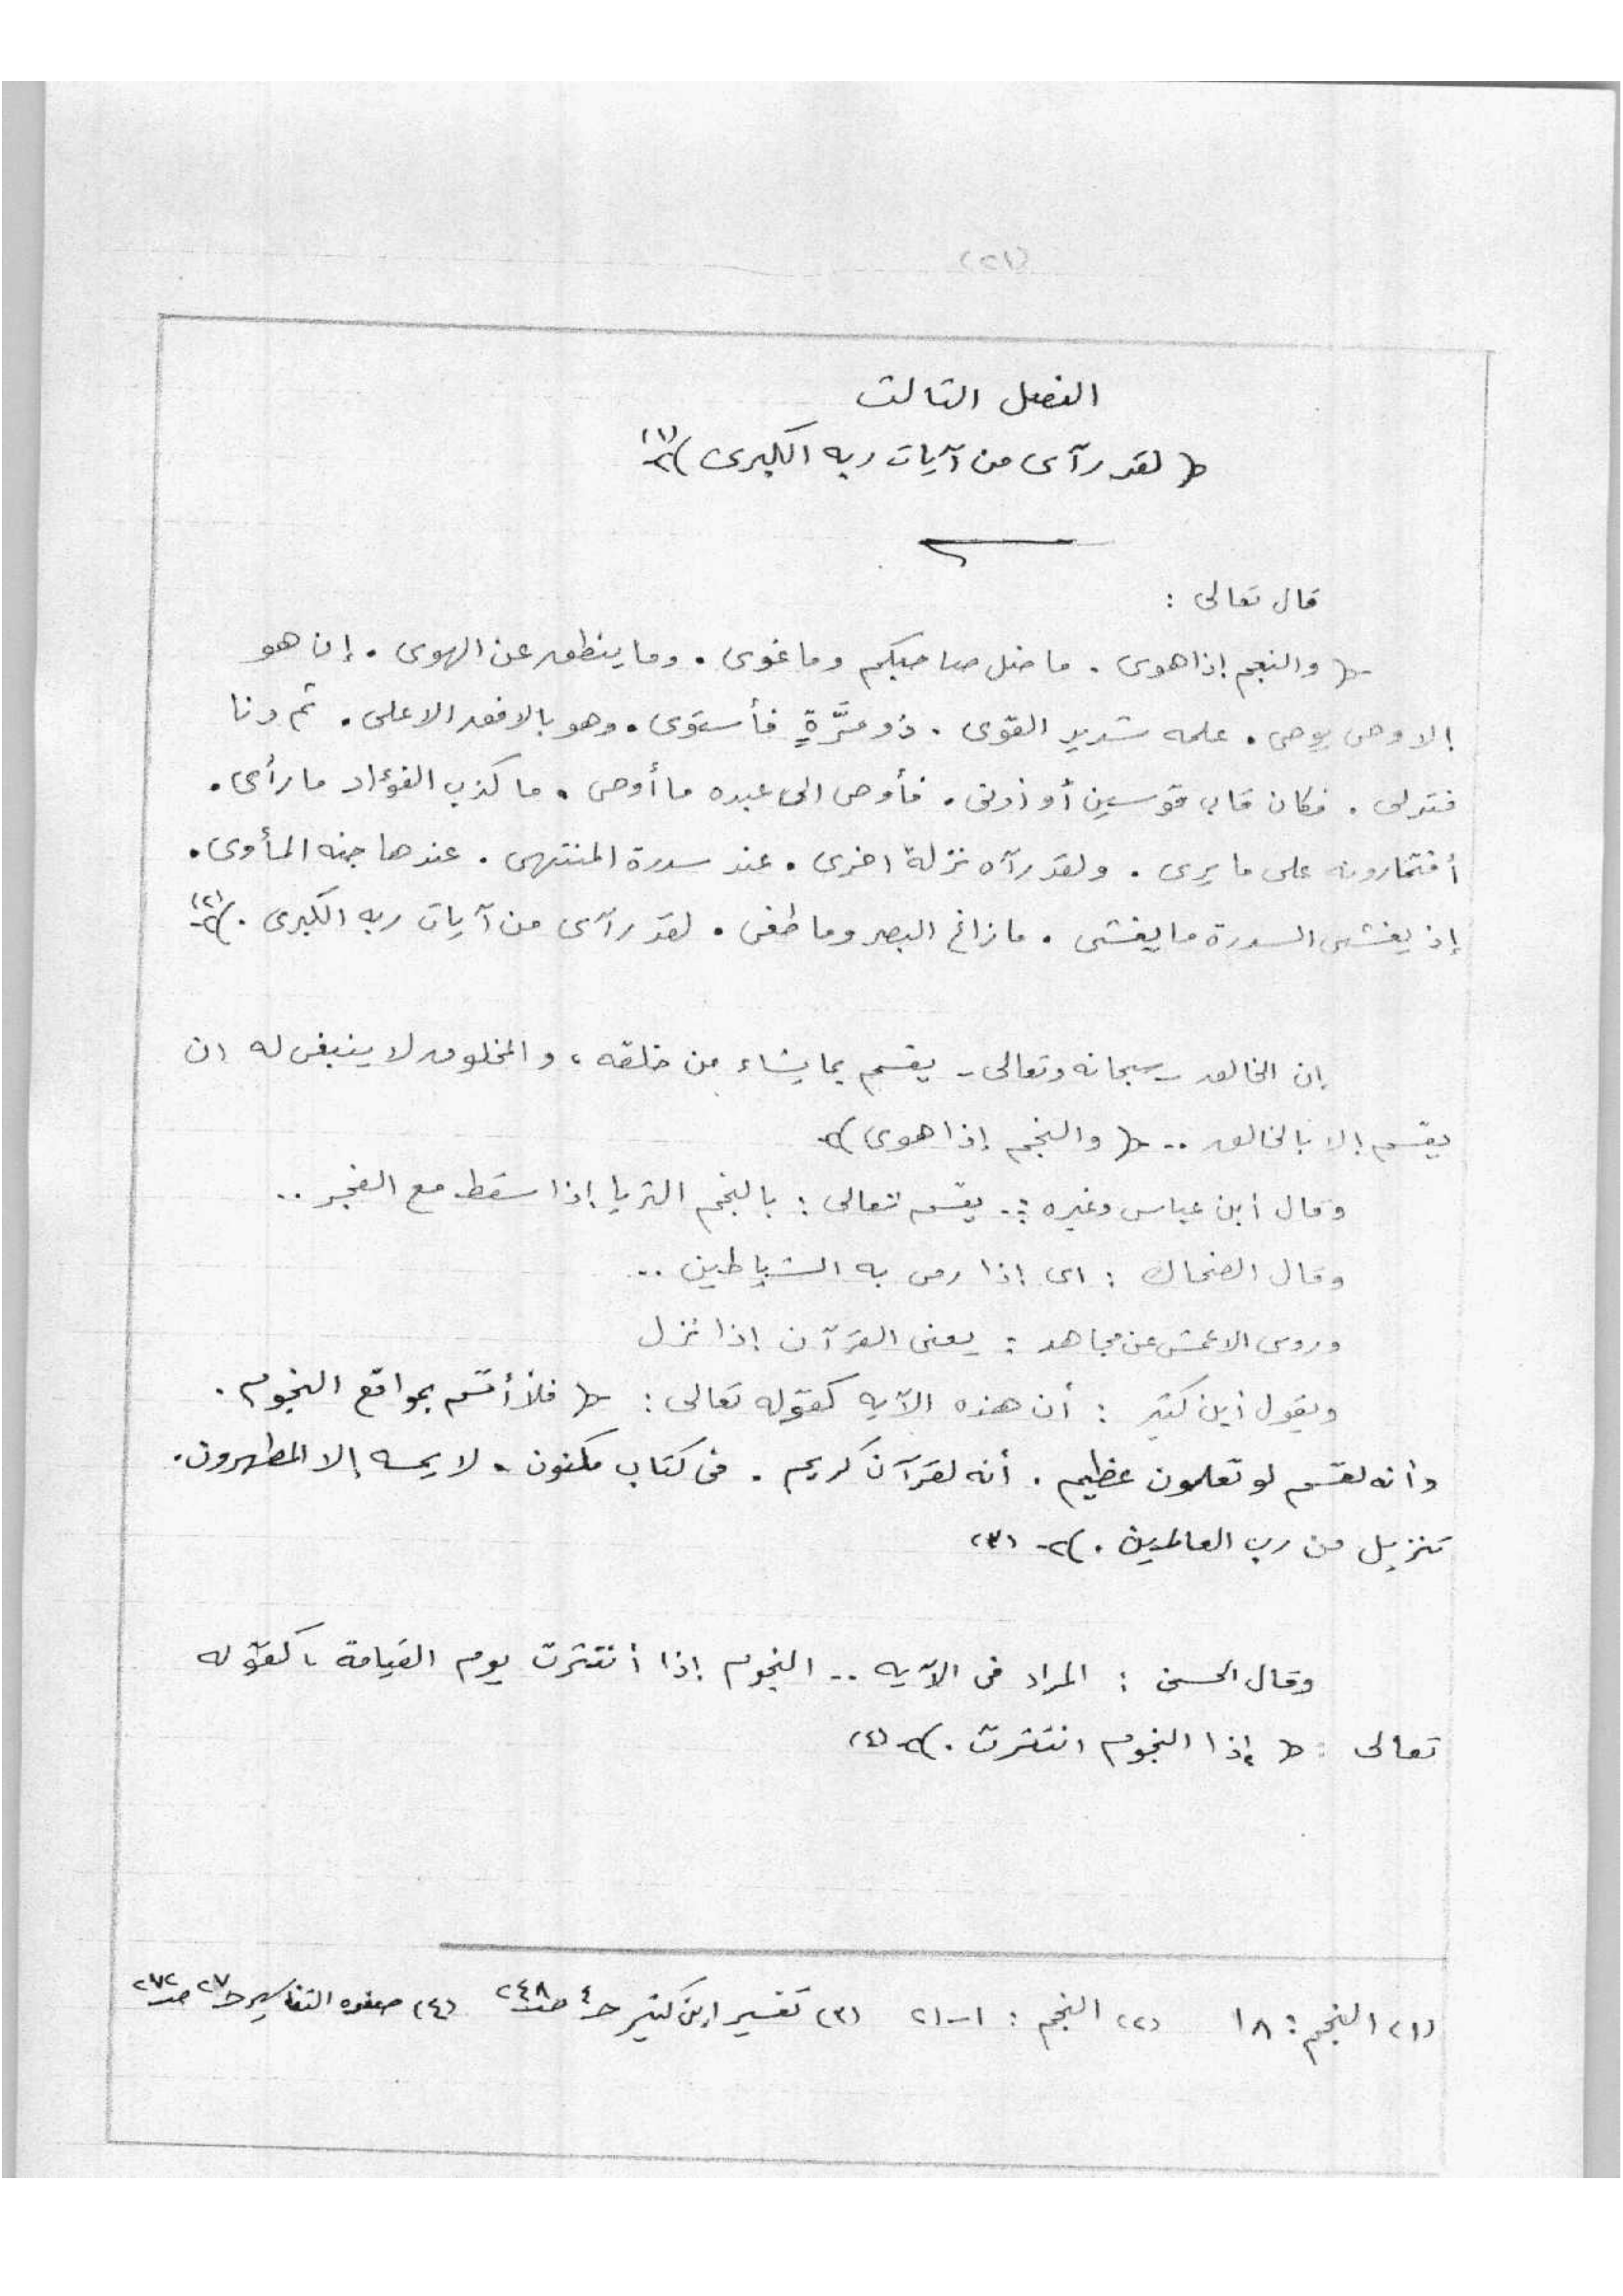 (٢١)
الفصل الثالث
﴿ لقد رآى من آيات ربه الكبرى ﴾(١)
قال تعالى :
﴿ والنجم إذا هوى . ما ضل صاحبكم وما غوى . وما ينطق عن الهوى . إن هو
إلا وحى يوحى . علمه شديد القوّى . ذو مرَّةٍ فأستوى . وهو بالافق الاعلى . ثم دنا
فتدلى . فكان قاب قوسين أو أدنى . فأوحى الى عبده ما أوحى . ما كذب الفؤاد ما رأى .
أفتمارونه على ما يرى . ولقد رآه نزلة اخرى . عند سدرة المنتهى . عندها جنه المأوى .
إذ يغشى السدرة ما يغشى . ما زاغ البصر وما طغى . لقد رآى من آيات ربه الكبرى . ﴾(٢)
إن الخالق - سبحانه وتعالى - يقسم بما يشاء من خلقه ، والمخلوق لا ينبغى له ان
يقسم إلا بالخالق .. ﴿ والنجم إذا هوى ﴾
وقال أبن عباس وغيره :. يقسم تعالى : بالنجم الثريا إذا سقط مع الفجر ..
وقال الضحاك : اى إذا رمى به الشياطين ..
وروى الاعمش عن مجاهد : يعنى القرآن إذا نزل
ويقول أبن كثير : أن هذه الآيه كقوله تعالى : ﴿ فلا أقسم بمواقع النجوم .
وأنه لقسم لو تعلمون عظيم . أنه لقرآن كريم . فى كتاب مكنون . لا يمسه إلا المطهرون .
تنزيل من رب العالمين . ﴾ (٣)
وقال الحسن : المراد فى الآيه .. النجوم إذا أنتثرت يوم القيامة ، كقوله
تعالى : ﴿ إذا النجوم انتثرت . ﴾ (٤)
(١) النجم : ١٨ (٢) النجم : ١-٢١ (٣) تفسير إبن كثير حـ٤ صـ٢٤٨ (٤) صفوه التفاسير حـ٢٧ صـ٢٧٢